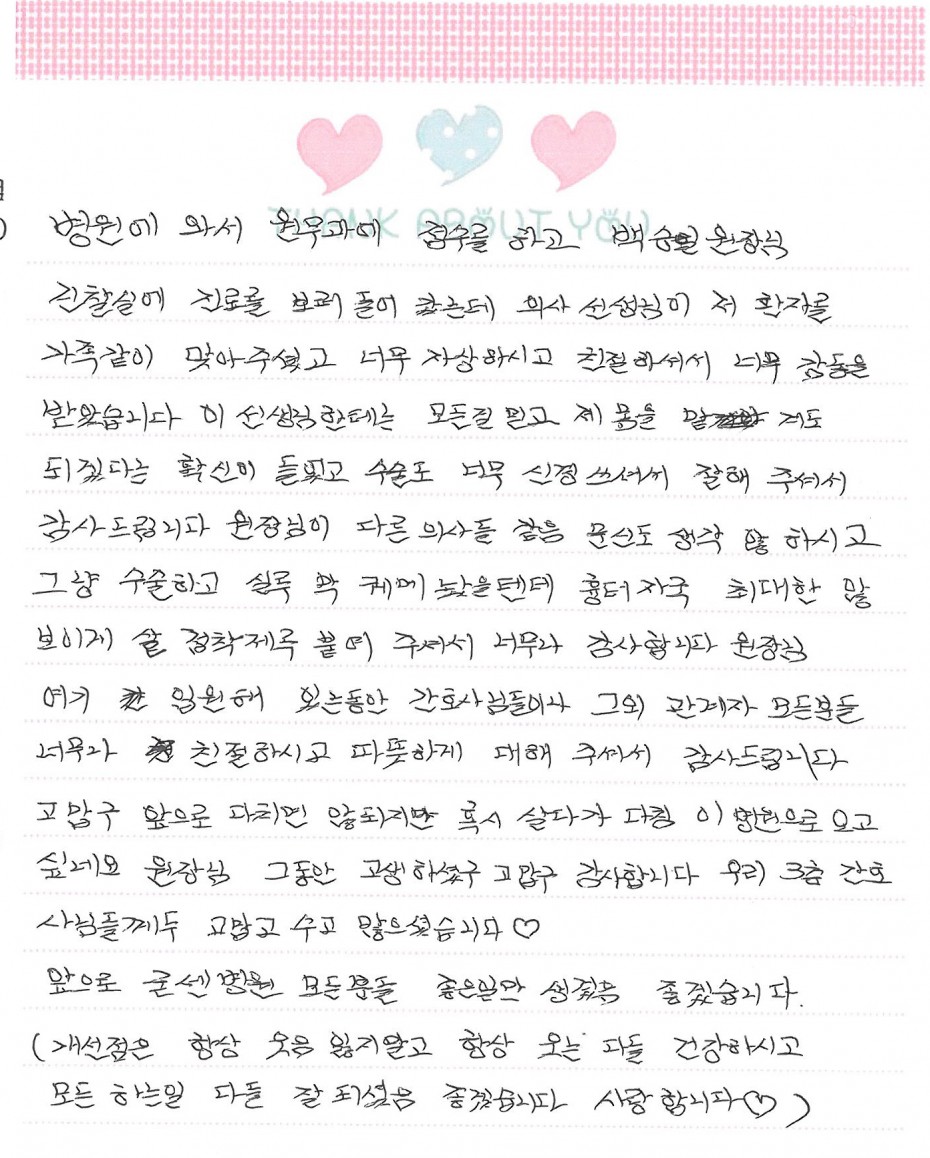 THANK ABOUT YOU
병원에 와서 원무과에 접수를 하고 백승일 원장님
진찰실에 진료를 보러 들어 갔는데 의사 선생님이 저 환자를
가족같이 맞아주셨고 너무 자상하시고 친절하셔서 너무 감동을
받았습니다 이 선생님한테는 모든걸 믿고 제 몸을 맡 겨도
되겠다는 확신이 들었고 수술도 너무 신경 쓰셔서 잘해 주셔서
감사드립니다 원장님이 다른 의사들 같음 문신도 생각 않 하시고
그냥 수술하고 실루 꽉 케메 놨을텐데 흉터자국 최대한 않
보이게 살 접착제루 붙여 주셔서 너무나 감사합니다 원장님
여기 입원해 있는동안 간호사님들이나 그외 관계자 모든분들
너무나 친절하시고 따뜻하게 대해 주셔서 감사드립니다
고맙구 앞으로 다치면 않되지만 혹시 살다가 다침 이 병원으로 오고
싶네요 원장님 그동안 고생하셨구 고맙구 감사합니다 우리 3층 간호
사님들께두 고맙고 수고 많으셨습니다♡
앞으로 굳센병원 모든분들 좋은일만 생겼음 좋겠습니다.
(개선점은 항상 웃음 잃지말고 항상 오는 다들 건강하시고
모든 하는일 다들 잘 되셨음 좋겠습니다 사랑합니다♡)